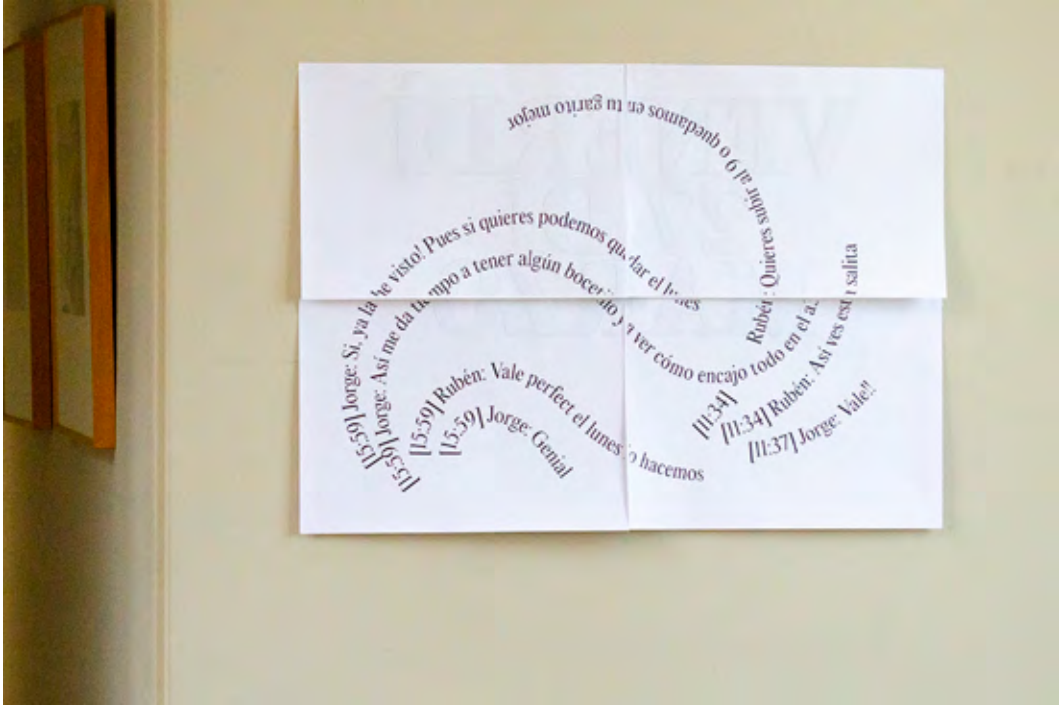 [15:59] Jorge: Si, ya la he visto! Pues si quieres podemos quedar el lunes
[15:59] Jorge: Así me da tiempo a tener algún y a ver cómo encajo todo en el
[15:59] Rubén: Vale perfect el lunes lo hacemos
[15:59] Jorge: Genial
[11:34] Rubén: Quieres subir al 9 o quedamos en tu garito mejor
[11:34] Rubén: Así ves esta salita
[11:37] Jorge: Vale!!